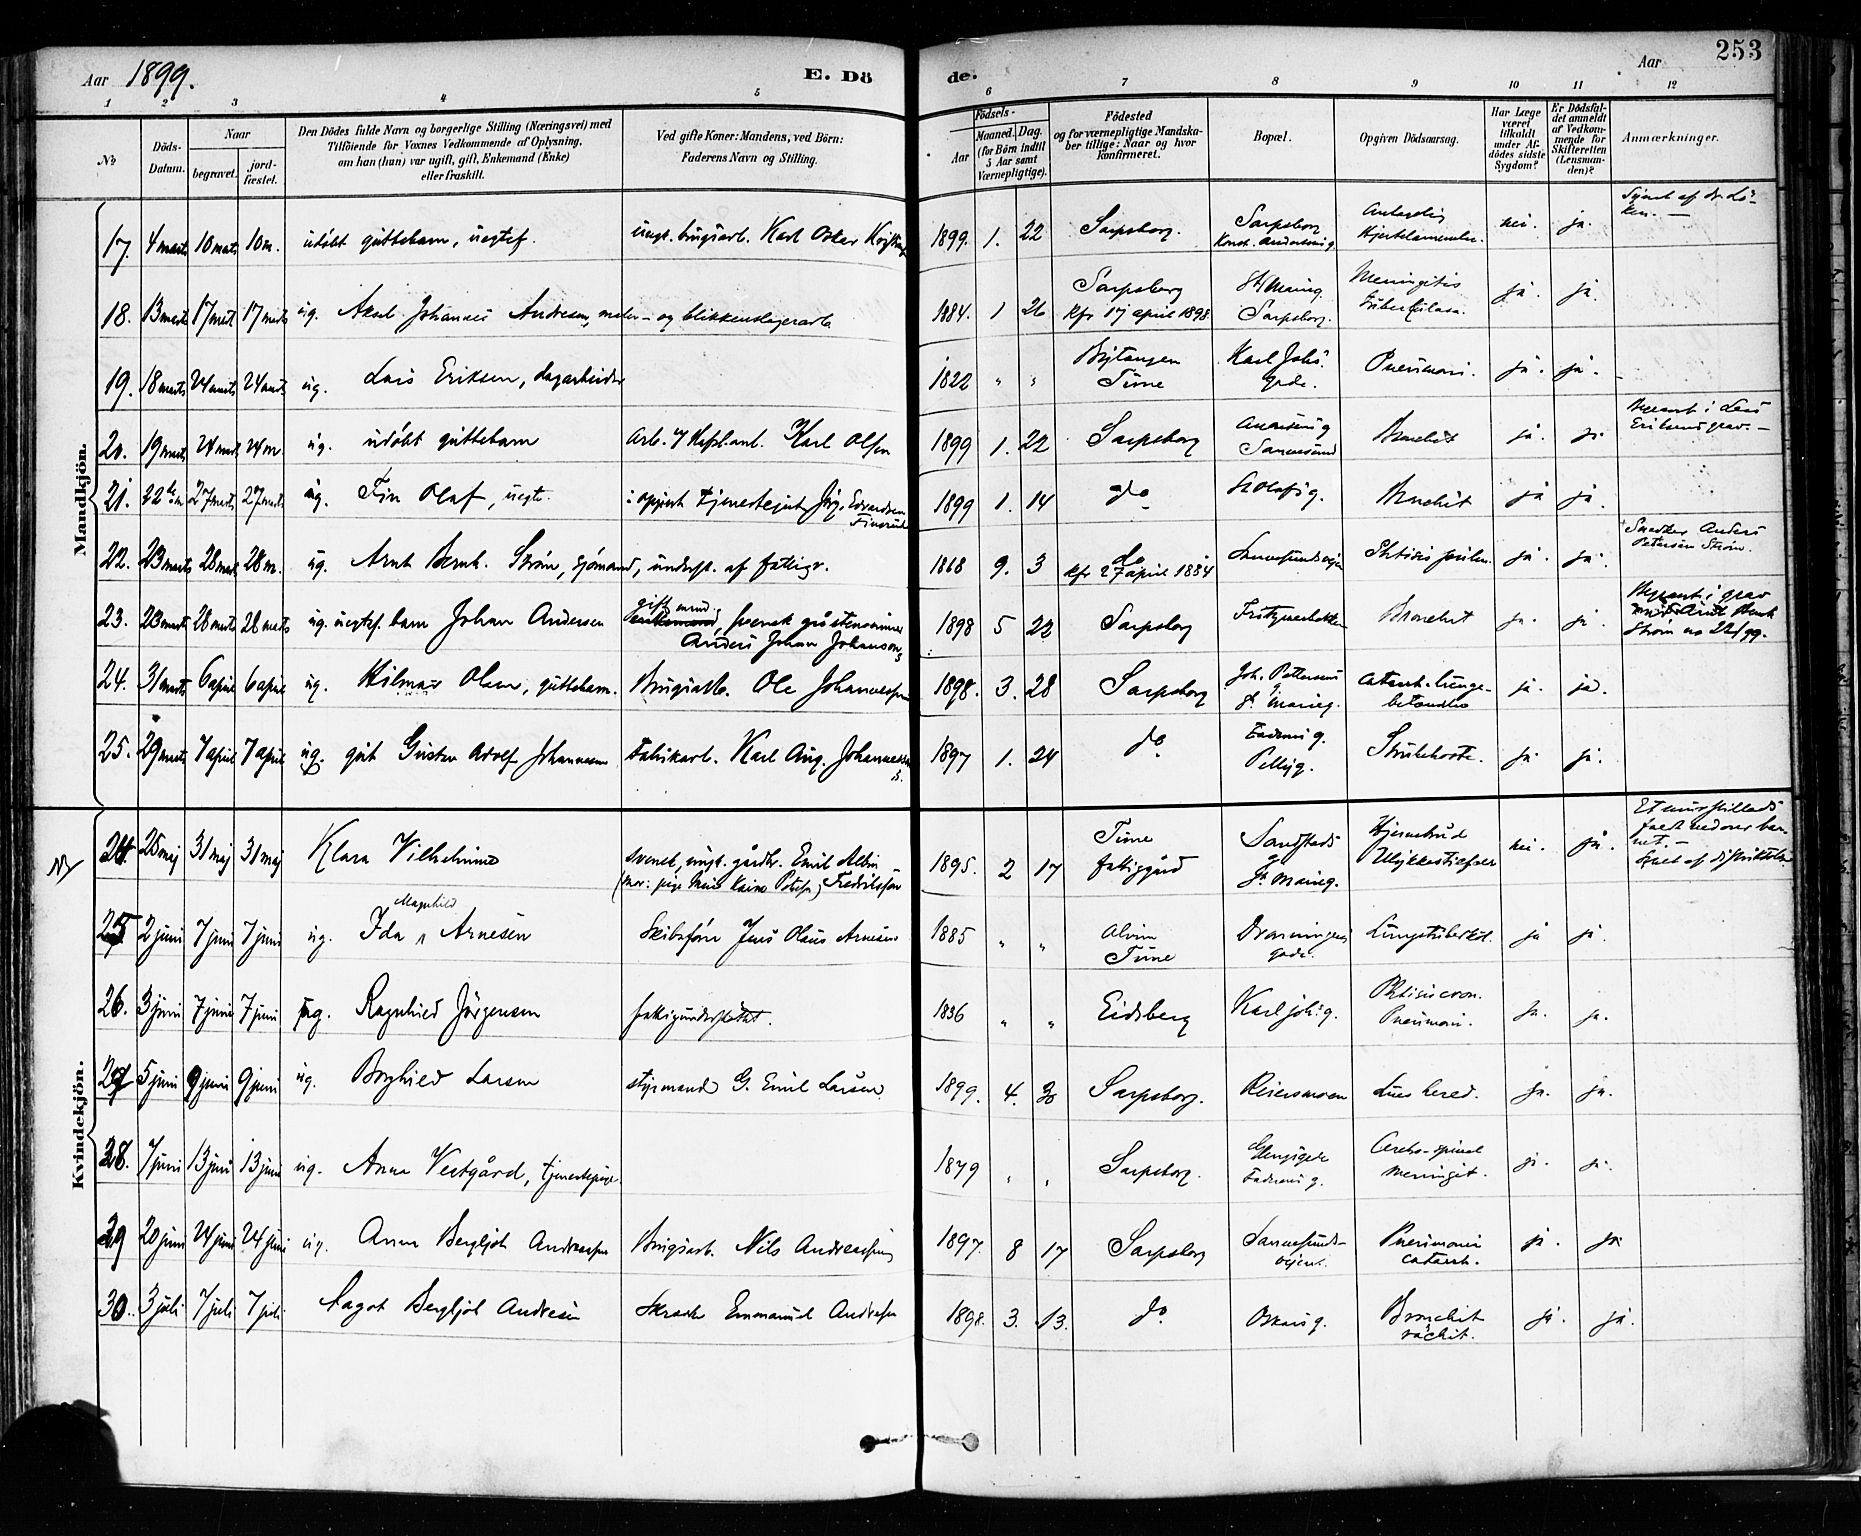 Aar 1899. E. Dö de. Aar 253
1 2 3 4 5 6 7 8 9 10 11 12
No
Döds-Datum.
Naar
begravet.
jord-fæstet.
Den Dödes fulde Navn og borgerlige Stilling (Næringsvei) med
Tilföiende for Voxnes Vedkommende af Oplysning,
om han (hun) var ugift, gift, Enkemand (Enke)
eller fraskilt.
Ved gifte Koner: Mandens, ved Börn:
Faderens Navn og Stilling.
Födsels-
Aar
Maaned. Dag.
(for Börn indtil
5 Aar samt
Værnepligtige).
Födested
og for værnepligtige Mandska-
ber tillige: Naar og hvor
konfirmeret.
Bopæl.
Opgiven Dödsaarsag.
Har Læge
været
tilkaldt
under Af-
dödes sidste
Sygdom?
Er Dödsfal-
det anmeldt
af Vedkom-
mende for
Skifteretten
(Lensman-
den)?
Anmærkninger.
Mandkjön.
17. 4 marts 10 marts 10 m. udöbt guttebarn, uegtef. ungk. brugsarb. Karl Oskar 1899. 1. 22 Sarpsborg. Sarpsborg nei. ja.
18. 13 marts 17 marts 17 marts ug. Aksel Johannes Andresen, maler- og blikkenslagerarb. 1884. 1 26 Sarpsborg Kfr 17 april 1898. St Marieg. Sarpsborg. Meningitis ja. ja.
19. 18 marts 24 marts 24 marts ug. Lars Eriksen, dagarbeider 1822 " " Tune Karl Johs' gade. Pneumoni. ja. ja.
20. 19 marts 24 marts 24 m. ug. udöbt guttebarn Karl Olsen 1899 1. 22 Sarpsborg Bronchit ja. ja. Begravet i Lars Eriksens grav.
21. 27 marts 27 marts ug. Fin Olaf, uegte. 1899 1. 14 do St Olafs g. Bronchit ja ja.
22. 23 marts 28 marts 28 m. ug. Arnt Bernh. Ström, sjömand, underst. af fattigv. 1868 9. 3 do kfr 27 april 1884 ja. ja. Snedker Anders Petersen Ström.
23. 23 marts 28 marts 28 marts ug. uegtef. barn Johan Andersen gift mand, svensk Anders Johan Johanson 1898 5 22 Sarpsborg Bronchit ja. ja. Begravet i grav med Arnt Bernh Ström no 22/99.
24. 31 marts 6 april 6 april ug. Hilmar Olsen, guttebarn. Brugsarb. Ole Johannessen 1898. 3. 28 Sarpsborg Joh. Pettersens g. St Marieg. catarrh. lunge-betændelse ja. ja.
25. 29 marts 7 april 7 april ug. gut Gustav Adolf Johannesen Fabrikarb. Karl Aug. Johannessen 1897 1. 24 do Pellyg. Strubehoste. ja. ja.
Kvindekjön.
24 28 maj 31 maj 31 maj Klara Vilhelmine svensk, ungk. gårdbr. Emil Albin Fredriksson 1895. 2 17 Tune fattiggård Sandstads g St Marieg. Hjernebrud Ulykkestilfælde nei. ja.
25 2 juni 7 juni 7 juni ug. Ida Magnhild Arnesen Skibsförer Jens Olaus Arnesen 1885 " " Alvim Tune Dronningens gade. Lungetuberkl. ja ja.
26. 3 juni 7 juni 7 juni ug. Ragnhild Jörgensen fattigunderstöttet. 1836 " " Eidsberg Karl joh. g. Pneumoni. ja. ja.
27 5 juni 9 juni 9 juni ug. Borghild Larsen styrmand G. Emil Larsen 1899. 4. 30 Sarpsborg. Reiersmoen Lues hered. ja. ja.
28. 7 juni 13 juni 13 juni ug. Anna Vestgård, tjenestepige. 1879 " " Sarpsborg. Glengsgade Faderens g. Cerebro-spinal meningit. ja. ja.
29 20 juni 24 juni 24 juni ug. Anna Bergljot Andreassen Brugsarb. Nils Andreassen 1897. 8 17 Sarpsborg Sannesunds-veien. Pneumoni catarrh. ja. ja
30. 3 juli 7 juli 7 juli Aagot Bergljot Andresen Skrædder Emmanuel Andresen 1898. 3. 13. do Oskars g. Bronchit rachit. ja. ja.